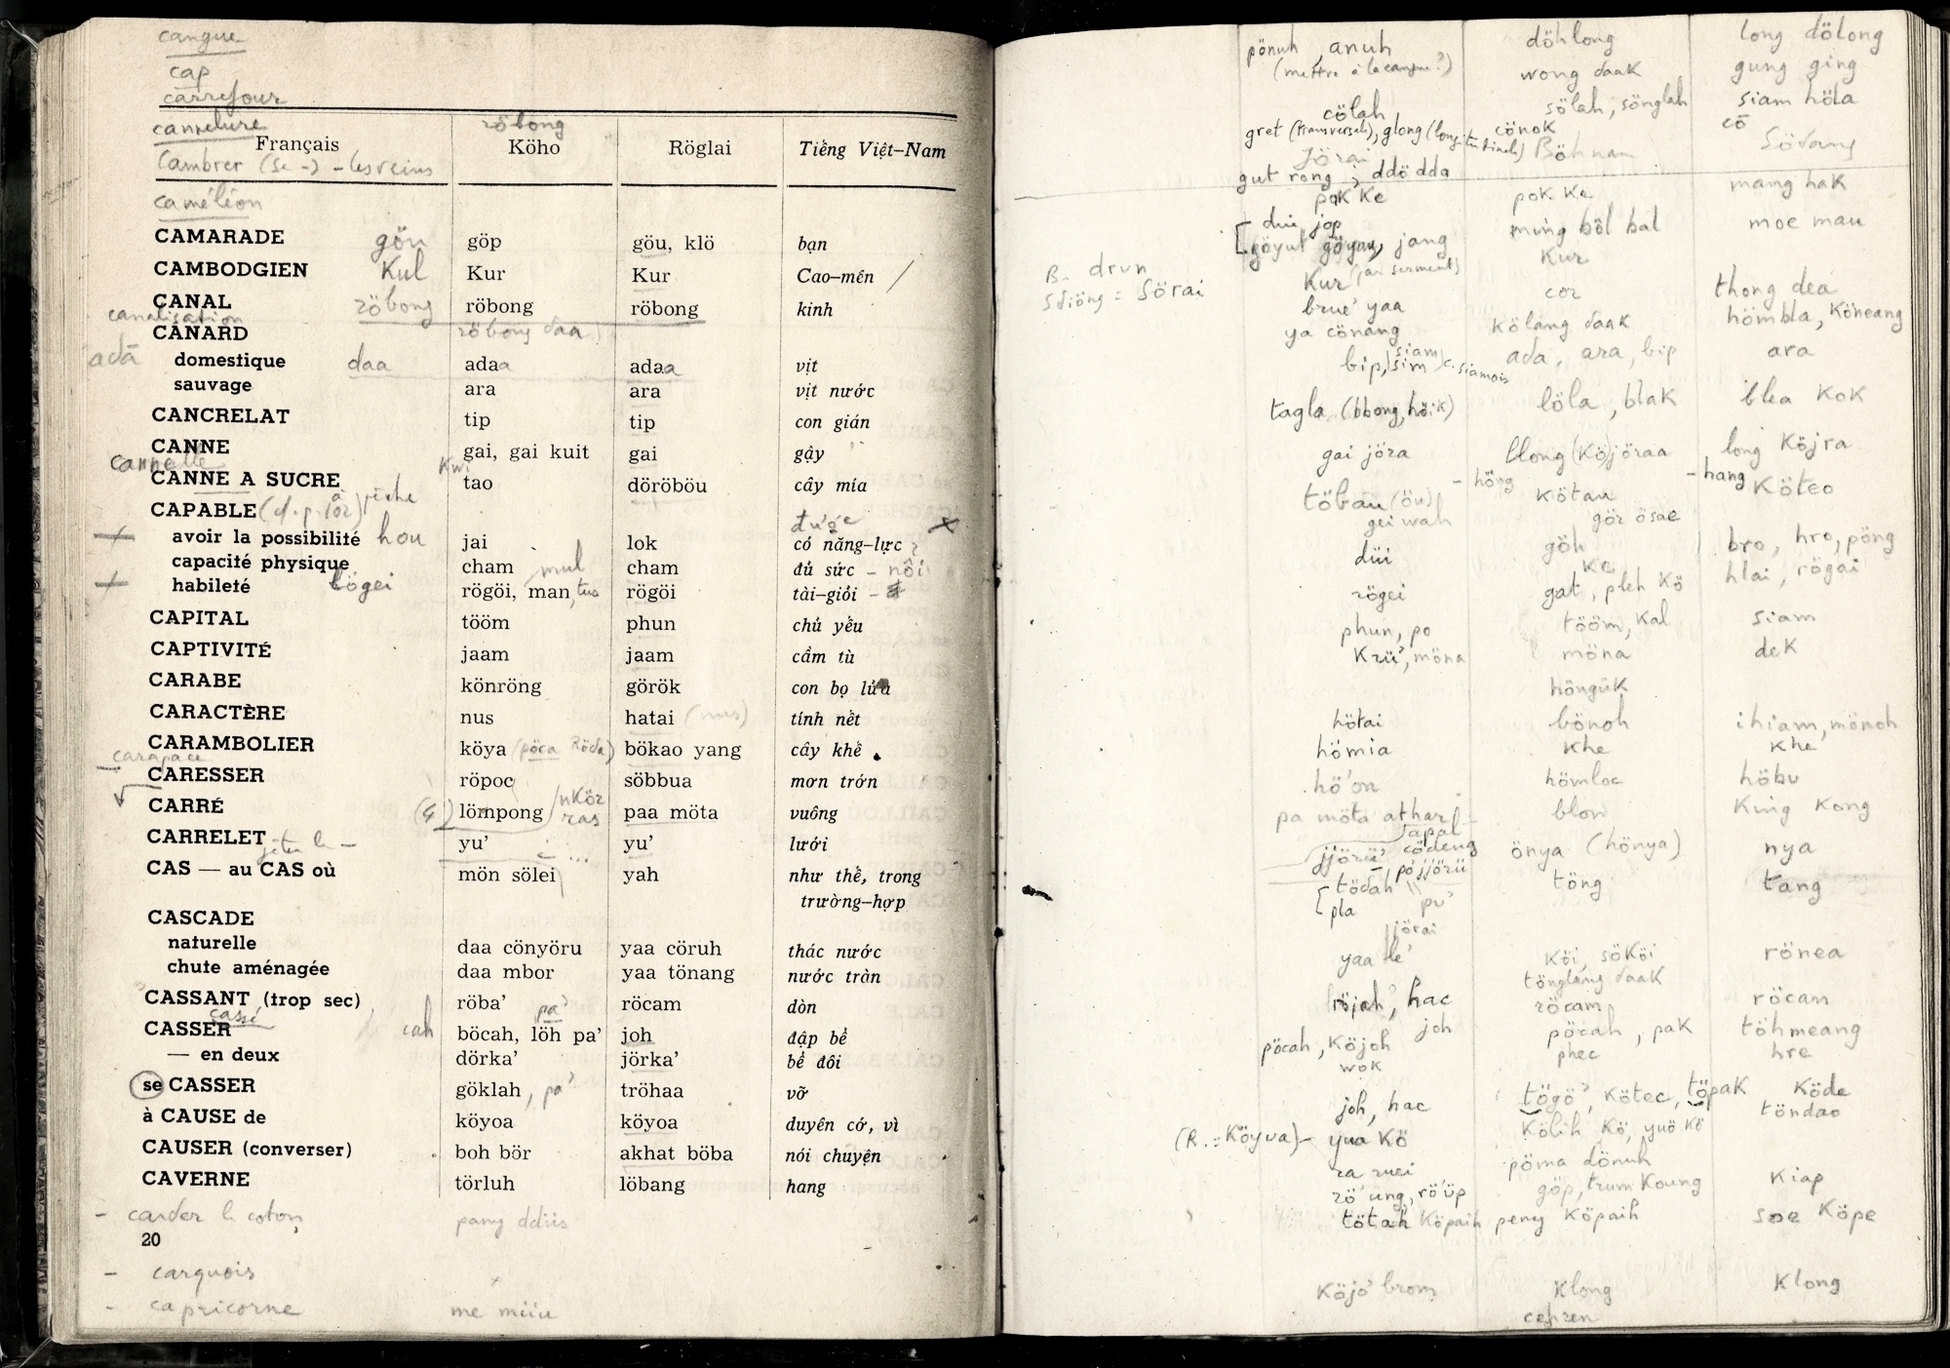 cangue
cap
carrefour
cannelure röbong
Français Köho Röglai Tiếng Việt-Nam
Cambrer (se -) - les reins
caméléon
CAMARADE göu göp göu, klö bạn
CAMBODGIEN Kul Kur Kur Cao-mên /
CANAL röbong röbong röbong kinh
canalisation
CANARD röbong daa
adă domestique daa adaa adaa vịt
sauvage ara ara vịt nước
CANCRELAT tip tip con gián
CANNE gai, gai kuit gai gậy
cannelle Kwi
CANNE A SUCRE tao döröböu cây mía
CAPABLE
được
avoir la possibilité hou jai lok có năng-lực
capacité physique cham mul cham đủ sức - nổi
habileté bögei rögöi, man, tus rögöi tài-giỏi
CAPITAL tööm phun chủ yếu
CAPTIVITÉ jaam jaam cầm tù
CARABE könröng görök con bọ lửa
CARACTÈRE nus hatai (nus) tính nết
CARAMBOLIER köya (pöca Röda) bökao yang cây khế
carapace
CARESSER röpoc söbbua mơn trớn
CARRÉ lömpong nKör ras paa möta vuông
CARRELET yu' yu' lưới
CAS — au CAS où mön sölei yah như thế, trong
trường-hợp
CASCADE
naturelle daa cönyöru yaa cöruh thác nước
chute aménagée daa mbor yaa tönang nước tràn
CASSANT (trop sec) röba' röcam dòn
cassé pa'
CASSER cah böcah, löh pa' joh đập bể
— en deux dörka' jörka' bể đôi
se CASSER göklah, pa' tröhaa vỡ
à CAUSE de köyoa köyoa duyên cớ, vì
CAUSER (converser) boh bör akhat böba nói chuyện
CAVERNE törluh löbang hang
- carder le coton pany ddiis
20
- carquois
- capricorne me miiu
pönuh, anuh döhlong long dölong
(mettre à la cangue ?) wong daak gung ging
cölah sölah, sönglah siam höla
gret (transversale), glong (longitudinale) cönoK cō
Jörai Böhnam Södang
gut rong, ddö dda mang hak
pak Ke pok Ke
dui jop ming böl bal moe mau
göyut göyau, jang
Kur (par serment) Kur
B- drun
Sdiöng = Sörai
brue' yaa cor thong dea
ya cönang kölang daak hömbla, Köneang
bip, siam sim c. siamois ada, ara, bip ara
tagla (bbong, höik) löla, blak blea KoK
gai jöra llong (Kö)jöraa long Köjra
töbau (öu) - höng kötau - hang Köteo
gei wah gör ösae
düi göh bro, hro, pöng
rögei Ke hlai, rögai
gat, pleh Kö
phun, po tööm, Kal siam
Krü', möna möna deK
höngüK
hötai bönoh ihiam, mönoh
hömia Khe Khe
hö'on hömloc höbu
pa möta athar blon King Kong
japal
jjörü' cödeng önya (hönya) nya
pö jjörü
tödah pu' töng tang
pla
jörai
yaa lé' Köi, söKöi rönea
tönglang daak
röjah', hac röcam röcam
pöcah, Köjoh joh pöcah, pak töhmeang
woK phec hre
joh, hac tögö', kötec, töpaK Köde
töndao
(R. = Köyua) yua Kö Kölih Kö, yuö Kö
ra ruei pöma dönuh
rö'üng, rö'üp göp, trum Koung Kiap
tötah Köpaih peny Köpaih soe Köpe
Köjö' brom Klong Klong